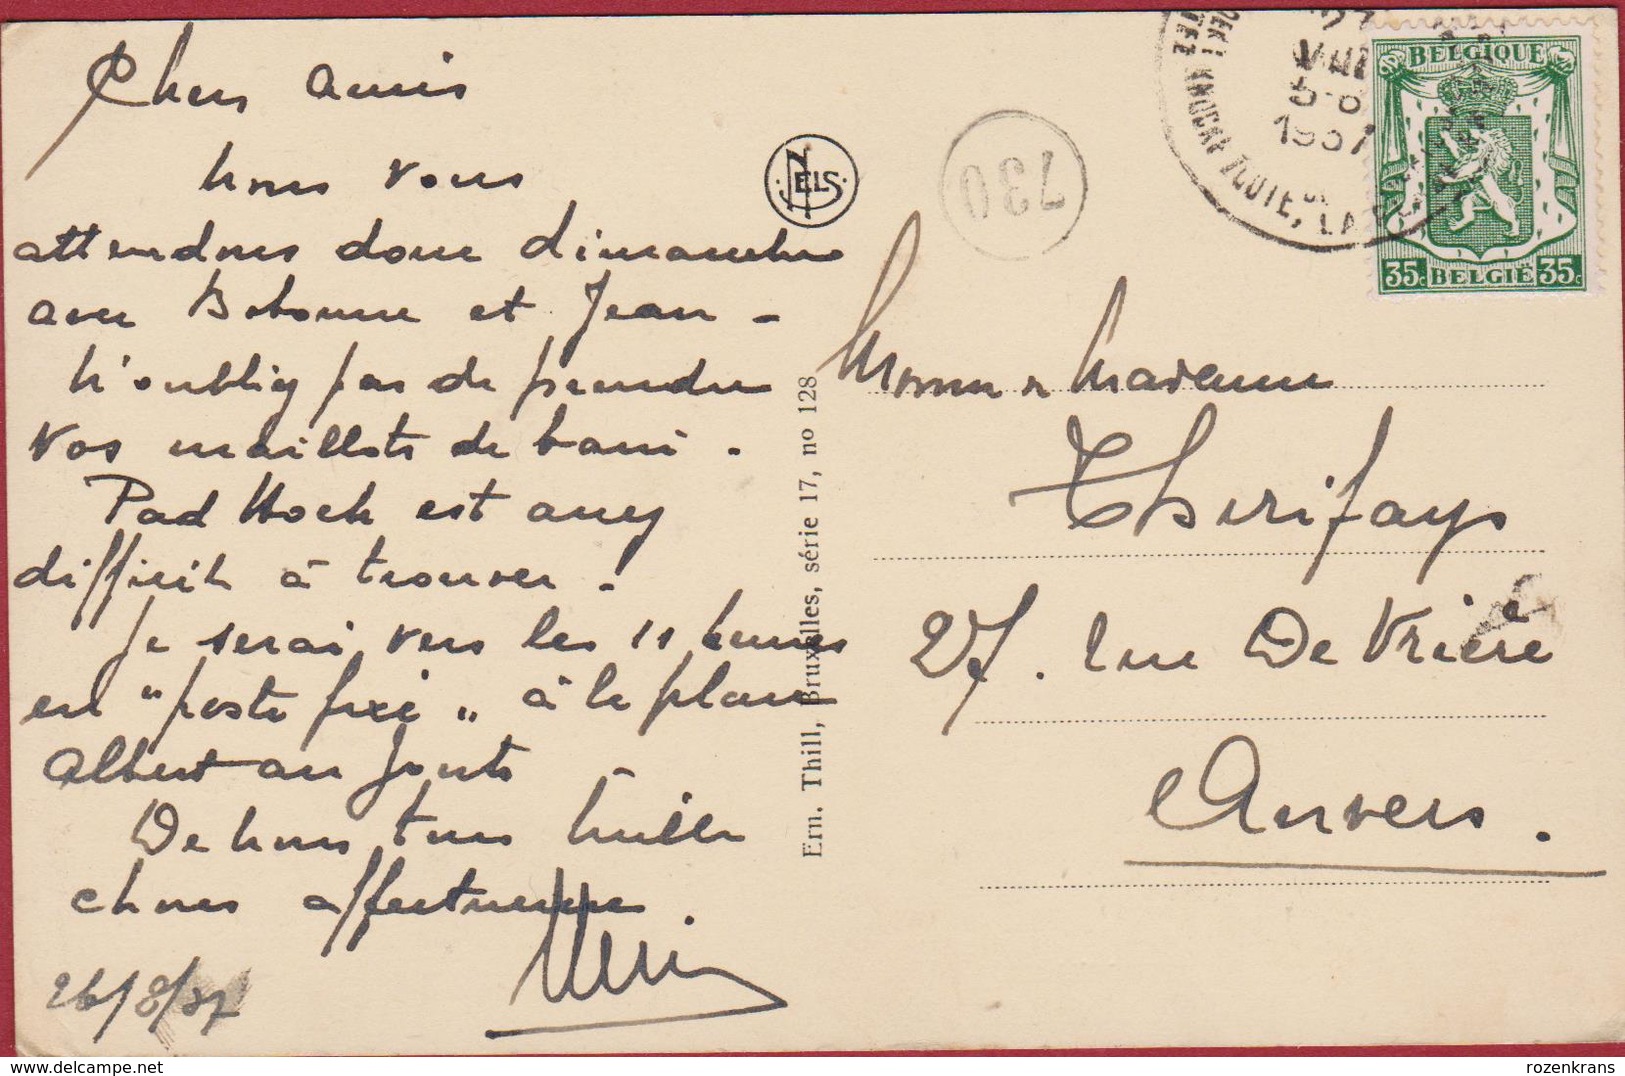 Chers amis
Nous vous
attendons donc dimanche
avec Bobonne et Jean -
N'oubliez pas de prendre
vos maillots de bain.
Pad Hoek est assez
difficile à trouver.
Je serai vers les 11 heures
en "poste fixe" à la place
Albert au Zoute
De nous tous mille
choses affectueuses.
26/8/37
NELS
Ern. Thill, Bruxelles, série 17, no 128
730
1937
KNOCKE ZOUTE, LA
BELGIQUE
35c BELGIË 35c
Monsieur & Madame
Therifays
27. rue De Vrière
Anvers.
rozenkrans